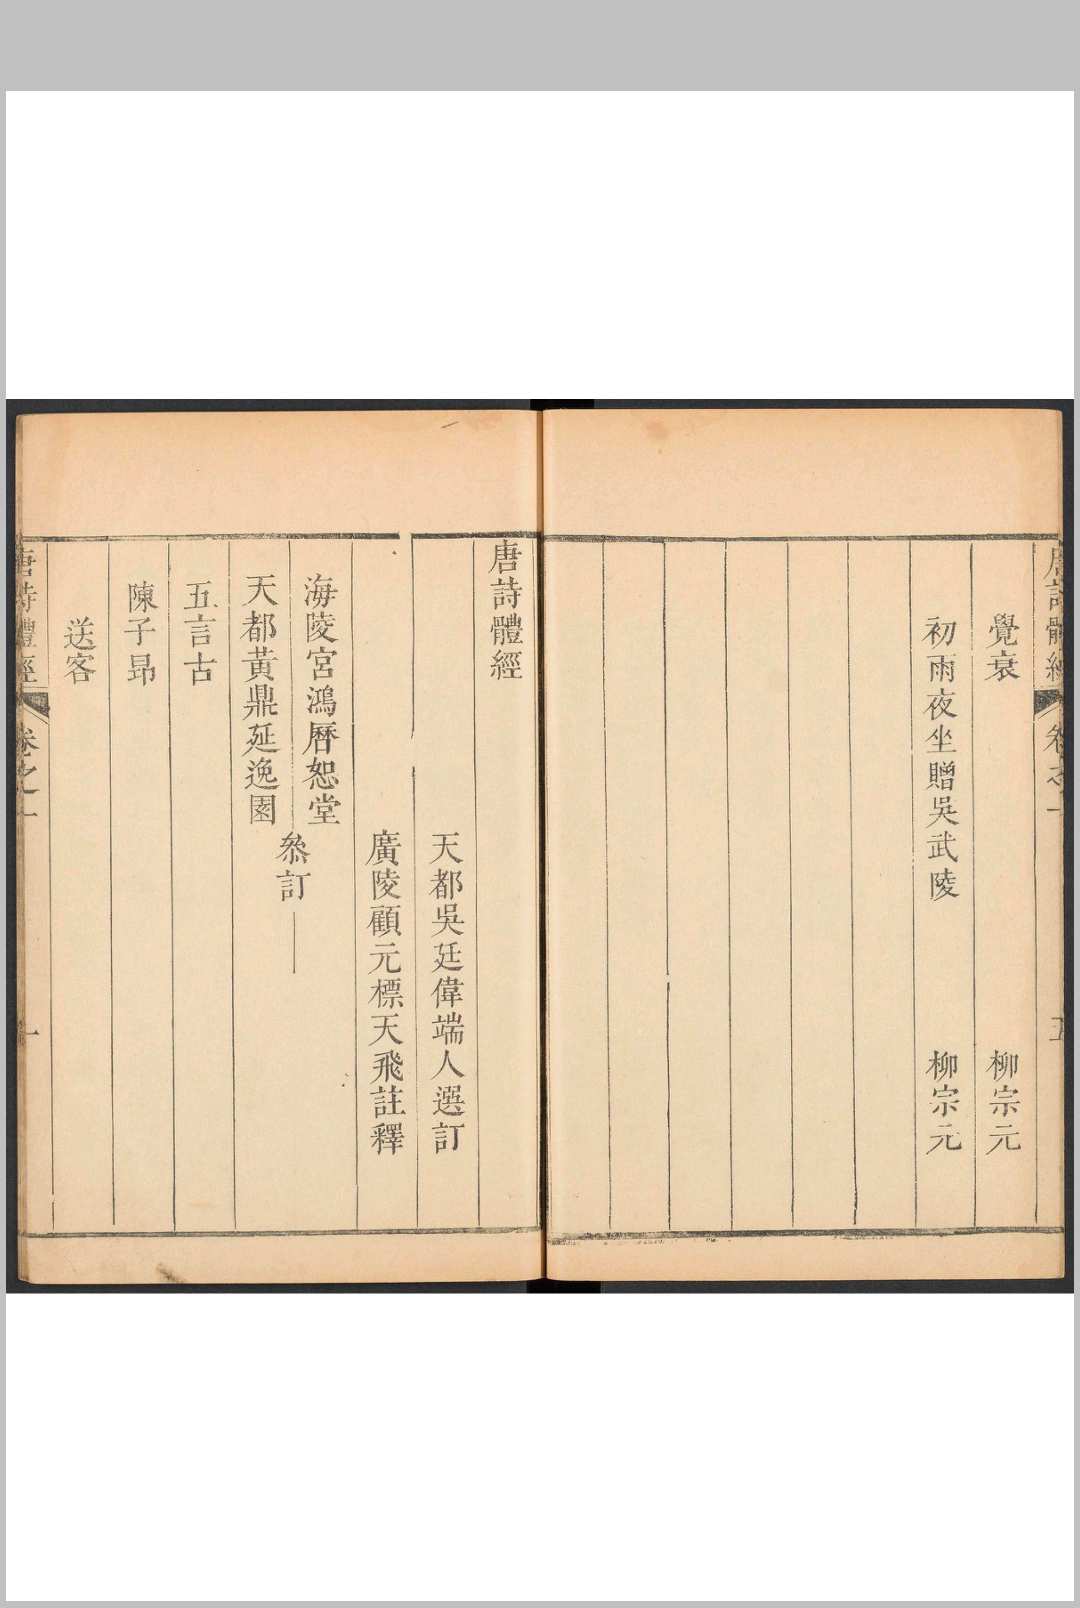 唐詩體經 卷之一 五
覺衰 柳宗元
初雨夜坐贈吳武陵 柳宗元
唐詩體經
天都吳廷偉端人選訂
廣陵顧元標天飛註釋
海陵宮鴻曆恕堂
天都黃鼎延逸園
叅訂
五言古
陳子昂
送客
唐詩體經 卷之一 一